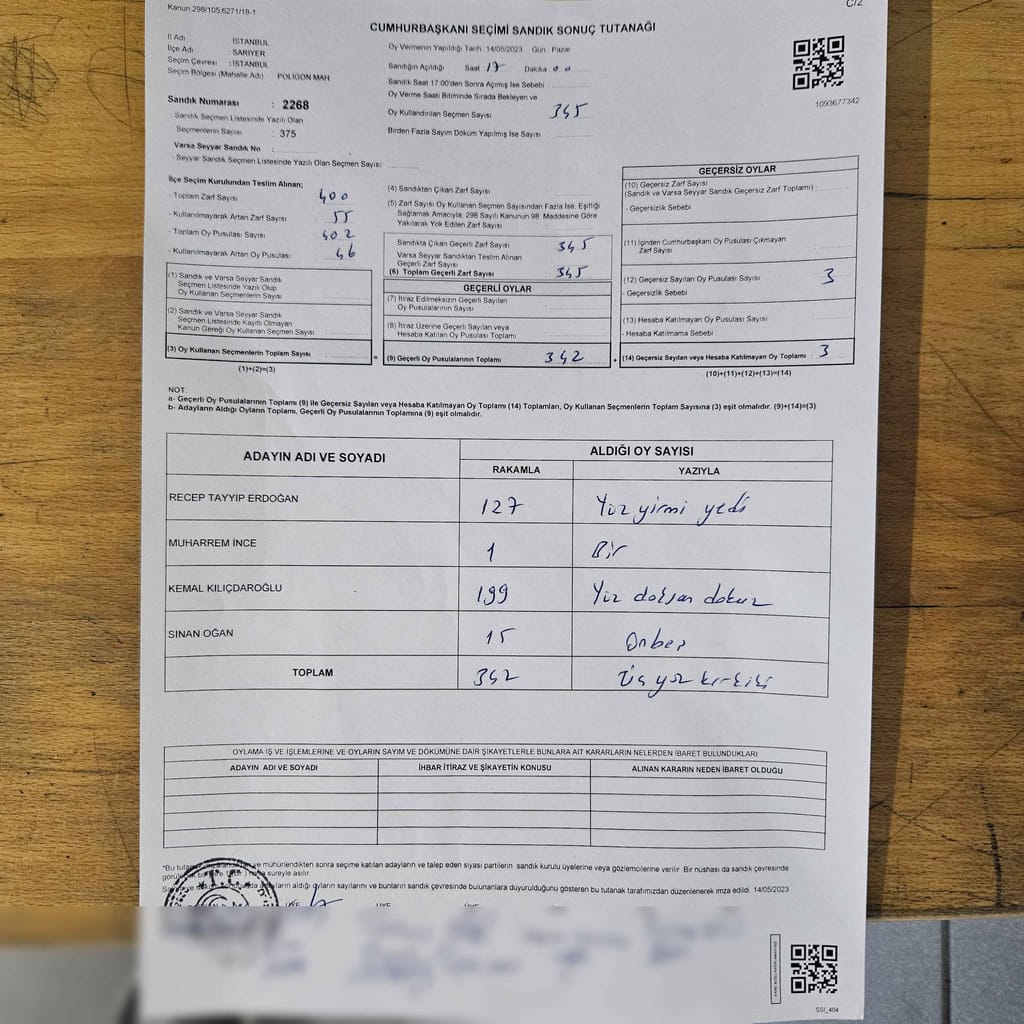 Kanun:298/105,6271/18-1
C/2
CUMHURBAŞKANI SEÇİMİ SANDIK SONUÇ TUTANAĞI
İl Adı : İSTANBUL
İlçe Adı : SARIYER
Seçim Çevresi : İSTANBUL
Seçim Bölgesi (Mahalle Adı) : POLİGON MAH
Sandık Numarası : 2268
- Sandık Seçmen Listesinde Yazılı Olan
Seçmenlerin Sayısı : 375
Varsa Seyyar Sandık No :
- Seyyar Sandık Seçmen Listesinde Yazılı Olan Seçmen Sayısı:
Oy Vermenin Yapıldığı Tarih :14/05/2023 Gün : Pazar
Sandığın Açıldığı Saat : 17 Dakika : 00
Sandık Saat 17.00'den Sonra Açılmış İse Sebebi :
Oy Verme Saati Bitiminde Sırada Bekleyen ve
Oy Kullandırılan Seçmen Sayısı : 345
Birden Fazla Sayım Döküm Yapılmış İse Sayısı :
1093677342
İlçe Seçim Kurulundan Teslim Alınan;
- Toplam Zarf Sayısı : 400
- Kullanılmayarak Artan Zarf Sayısı : 55
- Toplam Oy Pusulası Sayısı : 402
- Kullanılmayarak Artan Oy Pusulası : 46
(1) Sandık ve Varsa Seyyar Sandık
Seçmen Listesinde Yazılı Olup
Oy Kullanan Seçmenlerin Sayısı
(2) Sandık ve Varsa Seyyar Sandık
Seçmen Listesinde Kayıtlı Olmayan
Kanun Gereği Oy Kullanan Seçmen Sayısı
(3) Oy Kullanan Seçmenlerin Toplam Sayısı
(1)+(2)=(3)
(4) Sandıktan Çıkan Zarf Sayısı
(5) Zarf Sayısı Oy Kullanan Seçmen Sayısından Fazla İse, Eşitliği
Sağlamak Amacıyla, 298 Sayılı Kanunun 98. Maddesine Göre
Yakılarak Yok Edilen Zarf Sayısı
Sandıkta Çıkan Geçerli Zarf Sayısı : 345
Varsa Seyyar Sandıktan Teslim Alınan
Geçerli Zarf Sayısı
(6) Toplam Geçerli Zarf Sayısı : 345
GEÇERLİ OYLAR
(7) İtiraz Edilmeksizin Geçerli Sayılan
Oy Pusulalarının Sayısı
(8) İtiraz Üzerine Geçerli Sayılan veya
Hesaba Katılan Oy Pusulası Toplamı
= (9) Geçerli Oy Pusulalarının Toplamı 342
GEÇERSİZ OYLAR
(10) Geçersiz Zarf Sayısı
(Sandık ve Varsa Seyyar Sandık Geçersiz Zarf Toplamı)
- Geçersizlik Sebebi
(11) İçinden Cumhurbaşkanı Oy Pusulası Çıkmayan
Zarf Sayısı
(12) Geçersiz Sayılan Oy Pusulası Sayısı : 3
- Geçersizlik Sebebi
(13) Hesaba Katılmayan Oy Pusulası Sayısı
- Hesaba Katılmama Sebebi
+ (14) Geçersiz Sayılan veya Hesaba Katılmayan Oy Toplamı : 3
(10)+(11)+(12)+(13)=(14)
NOT:
a- Geçerli Oy Pusulalarının Toplamı (9) ile Geçersiz Sayılan veya Hesaba Katılmayan Oy Toplamı (14) Toplamları, Oy Kullanan Seçmenlerin Toplam Sayısına (3) eşit olmalıdır. (9)+(14)=(3)
b- Adayların Aldığı Oyların Toplamı, Geçerli Oy Pusulalarının Toplamına (9) eşit olmalıdır.
ADAYIN ADI VE SOYADI
ALDIĞI OY SAYISI
RAKAMLA YAZIYLA
RECEP TAYYİP ERDOĞAN 127 Yüz yirmi yedi
MUHARREM İNCE 1 Bir
KEMAL KILIÇDAROĞLU 199 Yüz doksan dokuz
SİNAN OĞAN 15 Onbeş
TOPLAM 342 Üç yüz kırkiki
OYLAMA İŞ VE İŞLEMLERİNE VE OYLARIN SAYIM VE DÖKÜMÜNE DAİR ŞİKAYETLERLE BUNLARA AİT KARARLARIN NELERDEN İBARET BULUNDUKLARI
ADAYIN ADI VE SOYADI İHBAR İTİRAZ VE ŞİKAYETİN KONUSU ALINAN KARARIN NEDEN İBARET OLDUĞU
*Bu ve mühürlendikten sonra seçime katılan adayların ve talep eden siyasi partilerin sandık kurulu üyelerine veya gözlemcilerine verilir. Bir nüshası da sandık çevresinde
süreyle asılır.
aldığı oyların sayılarını ve bunların sandık çevresinde bulunanlara duyurulduğunu gösteren bu tutanak tarafımızdan düzenlenerek imza edildi. 14/05/2023
ÜYE ÜYE ÜYE
SSI_404